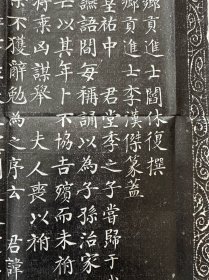 鄉貢進士閻休復撰
鄉貢進士李漢傑篆蓋
祐中 君堂李之子嘗歸于
語聞每稱誦以為子孫治家
以其年卜不協吉殯而未祔
將乘凶謀舉 夫人喪以祔
不獲辭勉為之序云 君諱